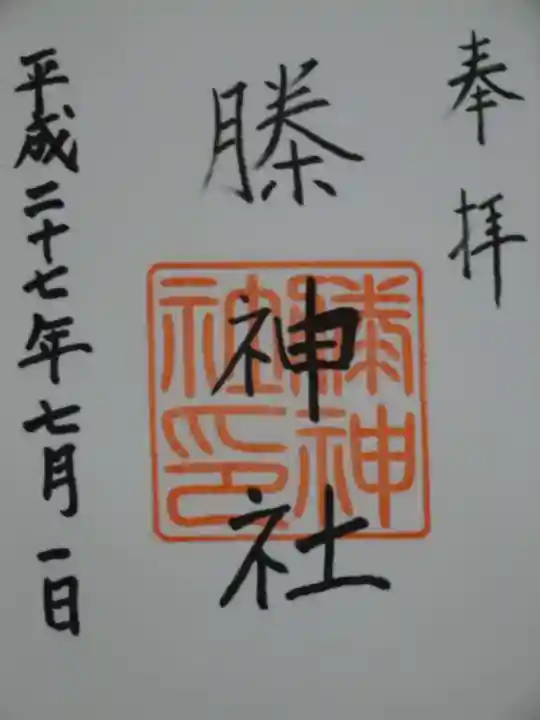 奉拝
榺神社
榺神
社印
平成二十七年七月一日